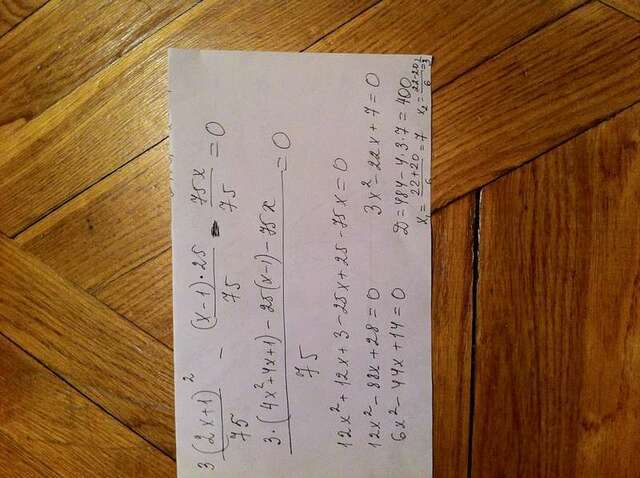 3(2x+1)²/75 - (x-1)·25/75 - 75x/75 = 0
3·(4x²+4x+1)-25(x-1)-75x/75 = 0
12x²+12x+3-25x+25-75x=0
12x²-88x+28=0 3x²-22x+7=0
6x²-44x+14=0 D=484-4·3·7=400
x₁=22+20/6=7 x₂=22-20/6=1/3